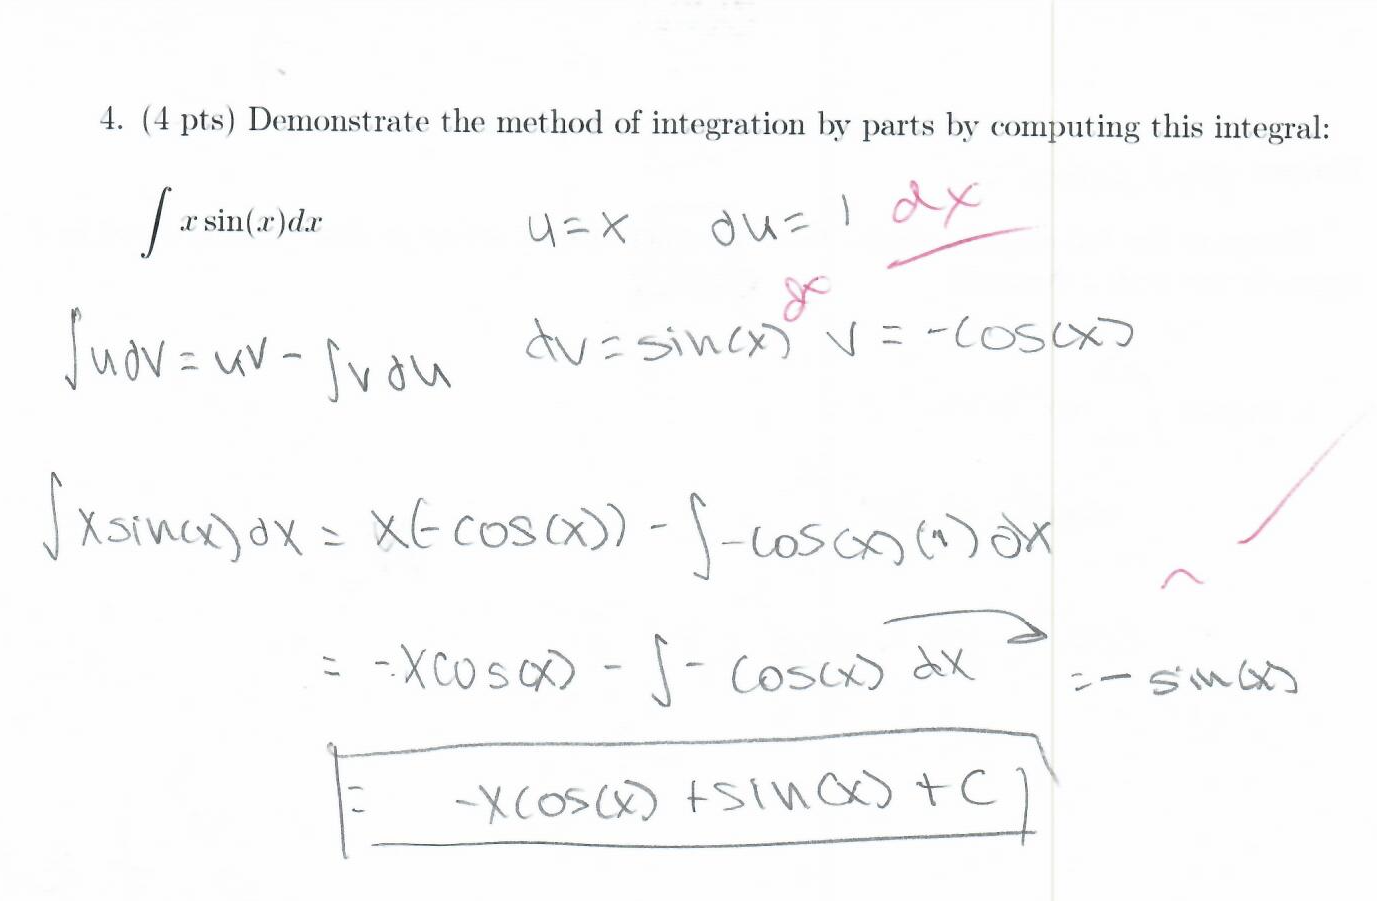 4. (4 pts) Demonstrate the method of integration by parts by computing this integral:
∫ x sin(x)dx u = x du = 1 dx
∫udv = uv - ∫vdu dv = sin(x) dx v = -cos(x)
∫xsin(x)dx = x(-cos(x)) - ∫-cos(x)(1)dx
= -xcos(x) - ∫-cos(x) dx = - sin(x)
= -xcos(x) + sin(x) + C